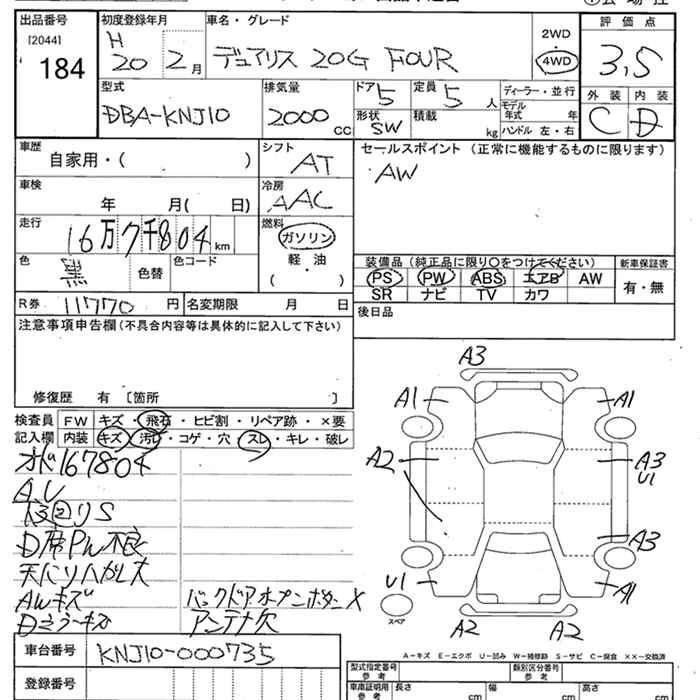 出品番号 [2044] 184
初度登録年月 H 20 2 月
車名・グレード デュアリス 20G FOUR
2WD
4WD
評価点 3,5
外装 内装
C D
型式 DBA-KNJ10
排気量 2000 cc
ドア 5
形状 SW
定員 5 人
積載 kg
ディーラー・並行
モデル年式 年
ハンドル 左・右
車歴 自家用・( )
シフト AT
セールスポイント (正常に機能するものに限ります)
AW
車検 年 月( 日)
冷房 AAC
走行 16万7千804 km
燃料 ガソリン
軽・油
( )
色 黒 色替 色コード
装備品 (純正品に限り○をつけてください)
PS PW ABS エアB AW
SR ナビ TV カワ
新車保証書
有・無
R券 11770 円 名変期限 月 日
後日品
注意事項申告欄 (不具合内容等は具体的に記入して下さい)
修復歴 有 [箇所 ]
検査員記入欄
FW キズ・飛石・ヒビ割・リペア跡・×要
内装 キズ・汚れ・コゲ・穴・スレ・キレ・破レ
オド167804
A.U
D席PW不良
天バリハガレ大
AWキズ
バックドアオープンボタンX
Dミラーキズ
アンテナ欠
A3
A1 A1
A2 A3
U1
A3
U1 A1
A2 A2
スペア
A-キズ E-エクボ U-凹み W-補修跡 S-サビ C-腐食 ××-交換済
車台番号 KNJ10-000735
登録番号
型式指定番号 参考
類別区分番号 参考
車庫証明用 参考 長さ cm 幅 cm 高さ cm